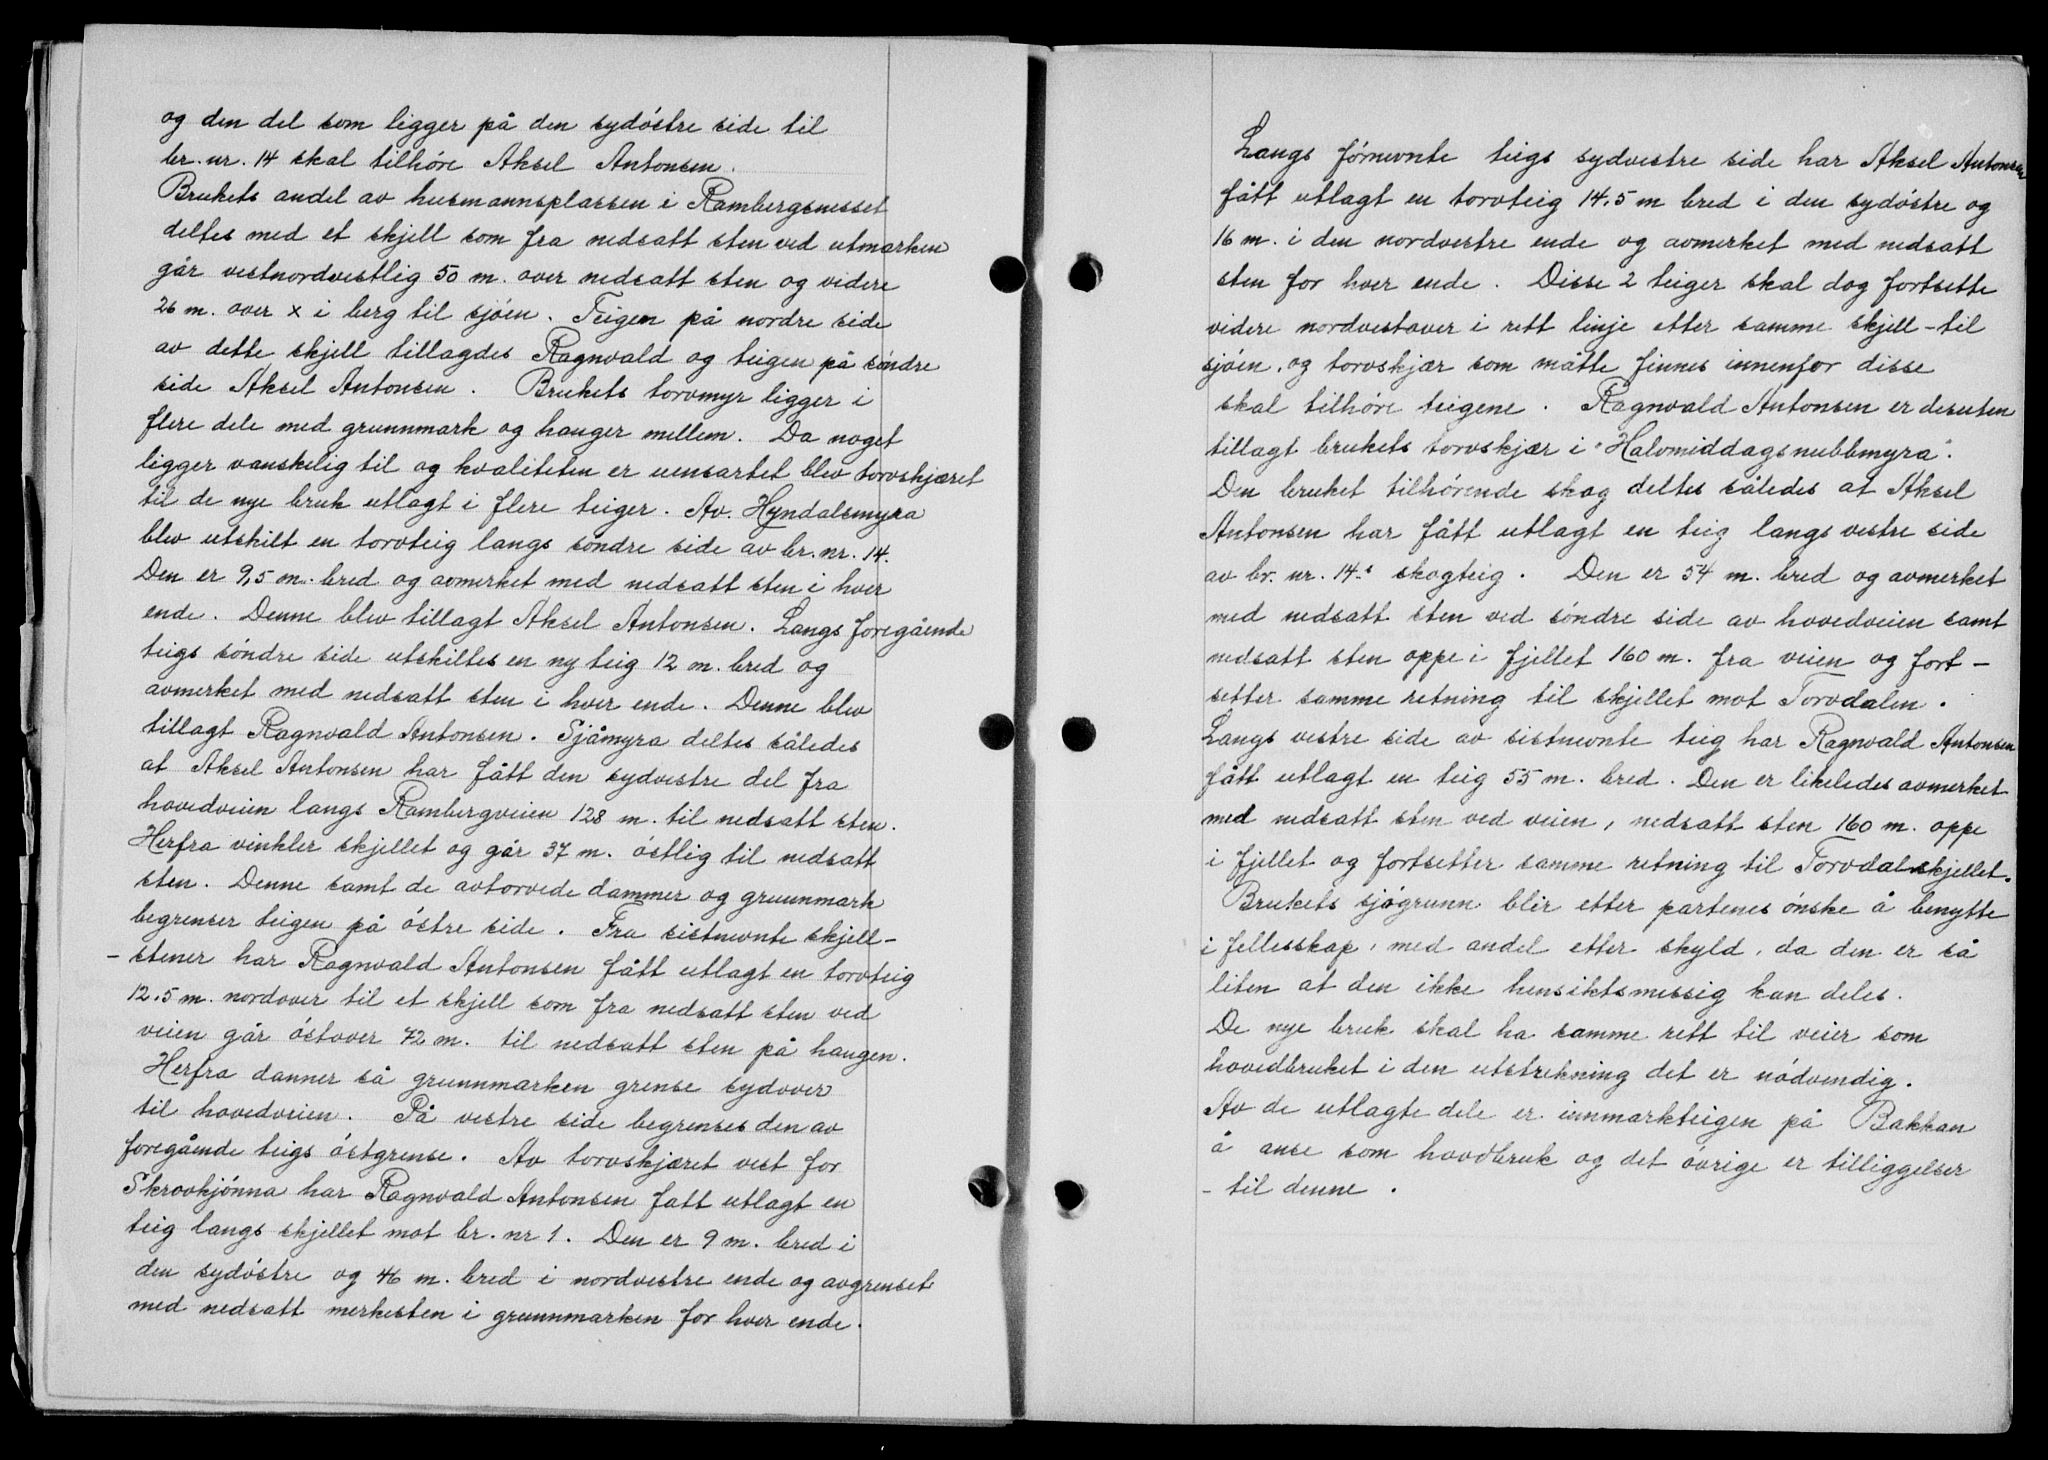 og den del som ligger på den sydóstre side til
br. nr. 14 skal tilhóre Aksel Antonsen.
Brukets andel av husmannsplassen i Rambergsnesset
deltes med et skjell som fra nedsatt sten ved utmarken
går vestnordvestlig 50 m. over nedsatt sten og videre
26 m. over x i berg til sjóen. Teigen på nordre side
av dette skjell tillagdes Ragnvald og teigen på sóndre
side Aksel Antonsen. Brukets torvmyr ligger i
flere dele med grunnmark og hauger mellem. Da noget
ligger vanskelig til og kvaliteten er uensartet blev torvskjæret
til de nye bruk utlagt i flere teiger. Av. Hyndalsmyra
blev utskilt en torvteig langs sóndre side av br. nr. 14.
Den er 9,5 m. bred og avmerket med nedsatt sten i hver
ende. Denne blev tillagt Aksel Antonsen. Langs foregående
teigs sóndre side utskiltes en ny teig 12 m. bred og
avmerket med nedsatt sten i hver ende. Denne blev
tillagt Ragnvald Antonsen. Sjåmyra deltes således
at Aksel Antonsen har fått den sydvestre del fra
hovedveien langs Rambergveien 128 m. til nedsatt sten.
Herfra vinkler skjellet og går 37 m. óstlig til nedsatt
sten. Denne samt de avtorvede dammer og grunnmark
begrenser teigen på óstre side. Fra sistnevnte skjell-
- stener har Ragnvald Antonsen fått utlagt en torvteig
12.5 m. nordover til et skjell som fra nedsatt sten ved
veien går óstover 72 m. til nedsatt sten på haugen.
Herfra danner så grunnmarken grense sydover
til hovedveien. På vestre side begrenses den av
foregående teigs óstgrense. Av torvskjæret vest for
Skrovkjónna har Ragnvald Antonsen fatt utlagt en
teig langs skjellet mot br. nr 1. Den er 9 m. bred i
den sydóstre og 46 m. bred i nordvestre ende og avgrenset
med nedsatt merkesten i grunnmarken for hver ende.
Langs fórnevnte teigs sydvestre side har Aksel Antonsen
fått utlagt en torvteig 14.5 m bred i den sydóstre og
16 m. i den nordvestre ende og avmerket med nedsatt
sten for hver ende. Disse 2 teiger skal dog fortsette
videre nordvestover i rett linje etter samme skjell - til
sjóen, og torvskjær som måtte finnes innenfor disse
skal tilhóre teigene. Ragnvald Antonsen er desuten
tillagt brukets torvskjær i "Halvmiddagsnubbmyra".
Den bruket tilhórende skog deltes således at Aksel
Antonsen har fått utlagt en teig langs vestre side
av br. nr. 14.s skogteig. Den er 54 m. bred og avmerket
med nedsatt sten ved sóndre side av hovedveien samt
nedsatt sten oppe i fjellet 160 m. fra veien og fort-
setter samme retning til skjellet mot Torvdalen.
Langs vestre side av sistnevnte teig har Ragnvald Antonsen
fått utlagt en teig 55 m. bred. Den er likeledes avmerket
med nedsatt sten ved veien, nedsatt sten 160 m. oppe
i fjellet og fortsetter samme retning til Torvdalskjellet.
Brukets sjógrunn blir etter partenes ónske å benytte
i fellesskap, med andel etter skyld, da den er så
liten at den ikke hensiktsmessig kan deles.
De nye bruk skal ha samme rett til veier som
hovedbruket i den utstrekning det er nódvendig.
Av de utlagte dele er innmarkteigen på Bakkan
å anse som hovdbruk og det óvrige er tilliggelser
- til denne.